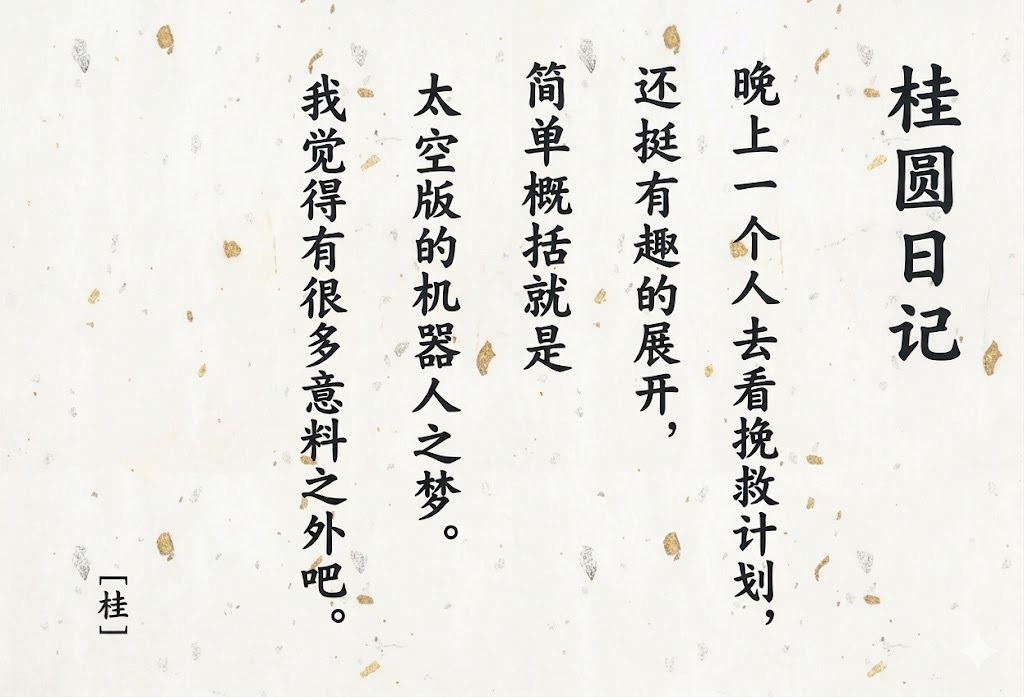 桂圆日记
晚上一个人去看挽救计划，
还挺有趣的展开，
简单概括就是
太空版的机器人之梦。
我觉得有很多意料之外吧。
［桂］